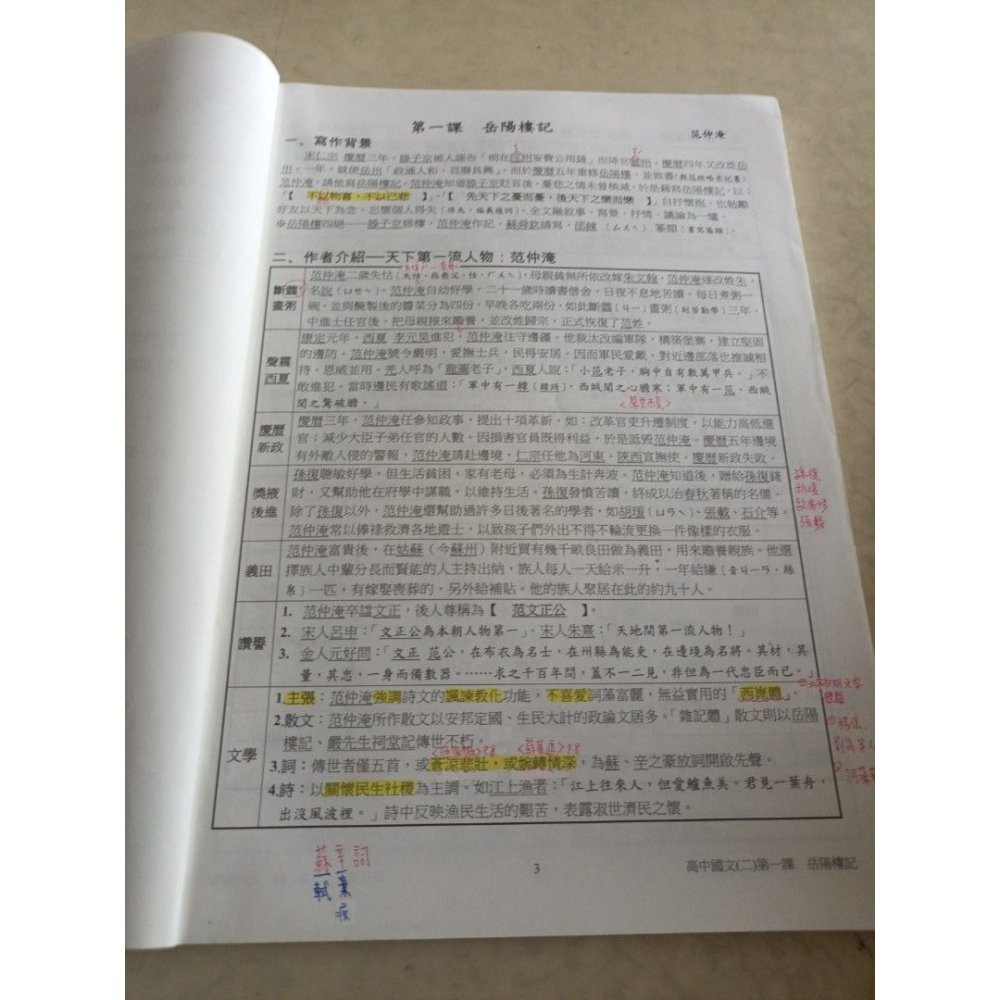 第一課　岳陽樓記
范仲淹
一、寫作背景
宋仁宗 慶曆三年，滕子京被人誣告「前在涇州寄費公用錢」而降官虢州，慶曆四年又改姓岳
州。一年，就使岳州「政通人和，百廢具興」，而於慶曆五年重修岳陽樓，並致書
范仲淹，請他寫岳陽樓記。范仲淹知道滕子京貶官後，憂悲之情未曾稍減，於是藉寫岳陽樓記，以：
「【　不以物喜，不以己悲　】」、「【　先天下之憂而憂，後天下之樂而樂　】」自抒懷抱，也勉勵
好友以天下為念，忘懷個人得失，全文融敘事、寫景、抒情、議論為一爐。
※岳陽樓四絕──滕子京修樓，范仲淹作記，蘇舜欽繕寫，邵餗（ㄙㄨˋ）篆額（書寫匾額）。
二、作者介紹──天下第一流人物：范仲淹
斷虀
畫粥
范仲淹二歲失怙（失怙，指喪父，怙，ㄏㄨˋ），母親謝無所依改嫁朱文翰，范仲淹遂改姓朱，
名說（ㄩㄝˋ）。范仲淹自幼好學，二十一歲時讀書僧舍，日夜不息地苦讀。每日煮粥一
碗，並與醃製後的醬菜分為四份，早晚各吃兩份，如此斷虀（ㄐㄧ）畫粥（刻苦勤學）三年。
中進士任官後，把母親接來贍養，並改姓歸宗，正式恢復了范姓。
聲震
西夏
康定元年，西夏 李元昊進犯，范仲淹往守邊疆。他裁汰改編軍隊，構築堡寨，建立堅固
的邊防。范仲淹號令嚴明，愛撫士兵，民得安居，因而軍民愛戴。對近邊部落也推誠相
待，恩威並用。羌人呼為「龍圖老子」，西夏人說：「小范老子，胸中自有數萬甲兵。」不
敢進犯。當時邊民有歌謠道：「軍中有一韓（韓琦），西賊聞之心膽寒；軍中有一范，西賊
聞之驚破膽。」
慶曆
新政
慶曆三年，范仲淹任參知政事，提出十項革新，如：改革官吏升遷制度，以能力高低選
官；減少大臣子弟任官的人數。因損害官員既得利益，於是詆毀范仲淹。慶曆五年邊境
有外敵入侵的警報，范仲淹請赴邊境，仁宗任他為河東、陝西宣撫使。慶曆新政失敗。
獎掖
後進
孫復聰敏好學，但生活貧困，家有老母，必須為生計奔波。范仲淹知道後，贈給孫復錢
財，又幫助他在府學中謀職，以維持生活。孫復發憤苦讀，終成以治春秋著稱的名儒。
除了孫復以外，范仲淹還幫助過許多日後著名的學者，如胡瑗（ㄩㄢˋ）、張載、石介等。
范仲淹常以俸祿救濟各地遊士，以致孩子們外出不得不輪流更換一件像樣的衣服。
孫復
胡瑗
歐陽修
張載
義田
范仲淹富貴後，在姑蘇（今蘇州）附近買有幾千畝良田做為義田，用來贍養親族。他選
擇族人中輩分長而賢能的人主持出納，族人每人一天給米一升，一年給縑（音ㄐㄧㄢ，絲
帛）一匹，有嫁娶喪葬的，另外給補貼。他的族人聚居在此的約九十人。
讚譽
1. 范仲淹卒諡文正，後人尊稱為【　范文正公　】。
2. 宋人呂中：「文正公為本朝人物第一」。宋人朱熹：「天地間第一流人物！」
3. 金人元好問：「文正 范公，在布衣為名士，在州縣為能吏，在邊境為名將。其材，其
量，其忠，一身而備數器。……求之千百年間，蓋不一二見，非但為一代忠臣而已。」
文學
1.主張：范仲淹強調詩文的諷諫教化功能，不喜愛詞藻富麗，無益實用的「西崑體」。
2.散文：范仲淹所作散文以安邦定國、生民大計的政論文居多。「雜記體」散文則以岳陽
樓記、嚴先生祠堂記傳世不朽。
3.詞：傳世者僅五首，或蒼涼悲壯，或婉轉情深，為蘇、辛之豪放詞開啟先聲。
4.詩：以關懷民生社稷為主調。如江上漁者：「江上往來人，但愛鱸魚美。君見一葉舟，
出沒風波裡。」詩中反映漁民生活的艱苦，表露淑世濟民之懷。
蘇軾
辛棄疾
詞
3
高中國文(二)第一課　岳陽樓記